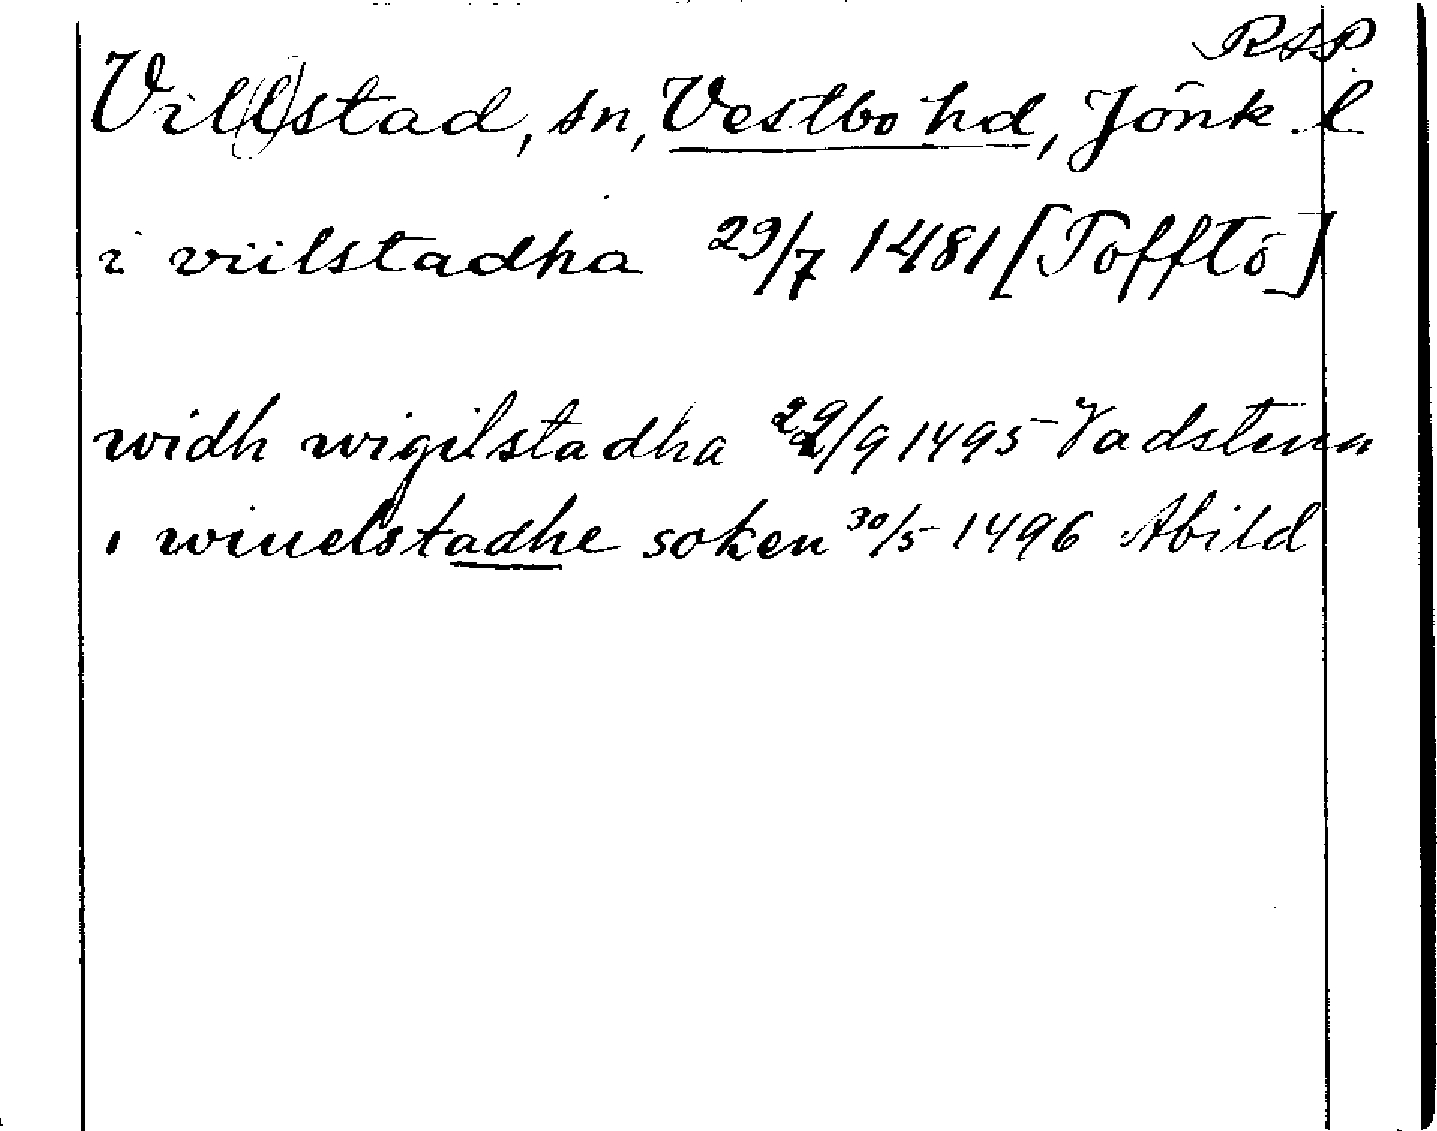 RAP
Vil(l)stad, sn, Vestbo hd, Jönk. l
i viilstadha 29/7 1481 [Tofftö]
widh wigilstadha 22/9 1495 Vadstena
i winelstadhe soken 30/5 1496 Abild